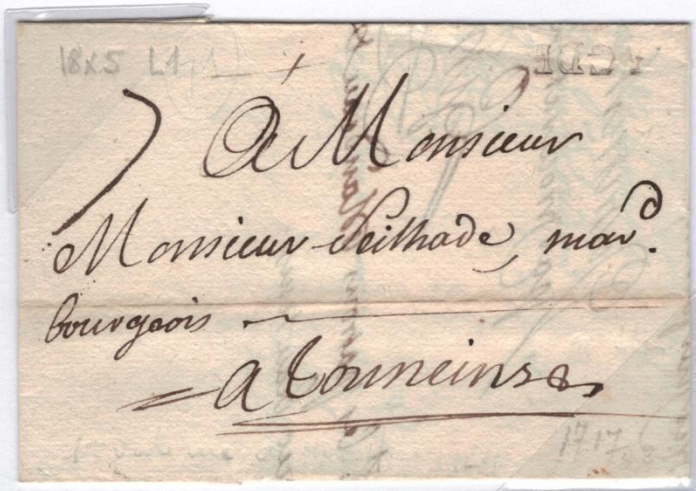 18x5 L1
AGDE
7
A Monsieur
Monsieur Peilhade, mard.
bourgeois
a tonneins